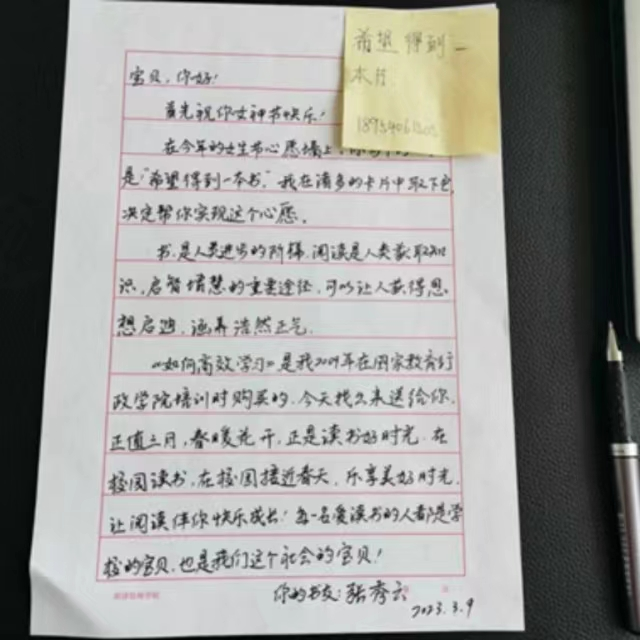 希望得到一
本书
宝贝，你好！
首先祝你女神节快乐！
在今年的女生节心愿墙上，你
是“希望得到一本书。”我在诸多的卡片中取下它
决定帮你实现这个心愿。
书是人类进步的阶梯，阅读是人类获取知
识、启智增慧的重要途径，可以让人获得思
想启迪，涵养浩然正气。
《如何高效学习》是我2019年在国家教育行
政学院培训时购买的，今天找出来送给你。
正值三月，春暖花开，正是读书好时光，在
校园读书，在校园接近春天，乐享美好时光，
让阅读伴你快乐成长！每一名爱读书的人都是学
校的宝贝，也是我们这个社会的宝贝！
你的书友：张秀云
2023.3.9